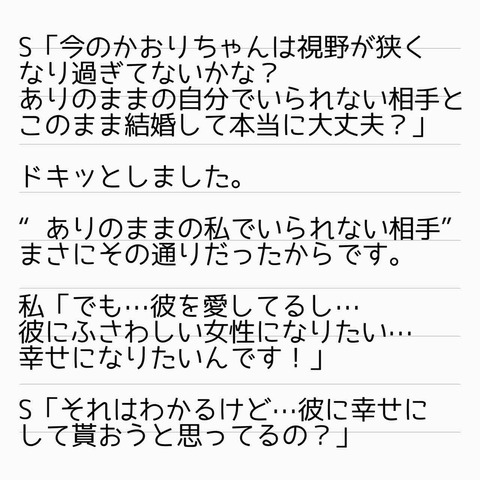 S「今のかおりちゃんは視野が狭く
なり過ぎてないかな？
ありのままの自分でいられない相手と
このまま結婚して本当に大丈夫？」
ドキッとしました。
“ ありのままの私でいられない相手”
まさにその通りだったからです。
私「でも…彼を愛してるし…
彼にふさわしい女性になりたい…
幸せになりたいんです！」
S「それはわかるけど…彼に幸せに
して貰おうと思ってるの？」